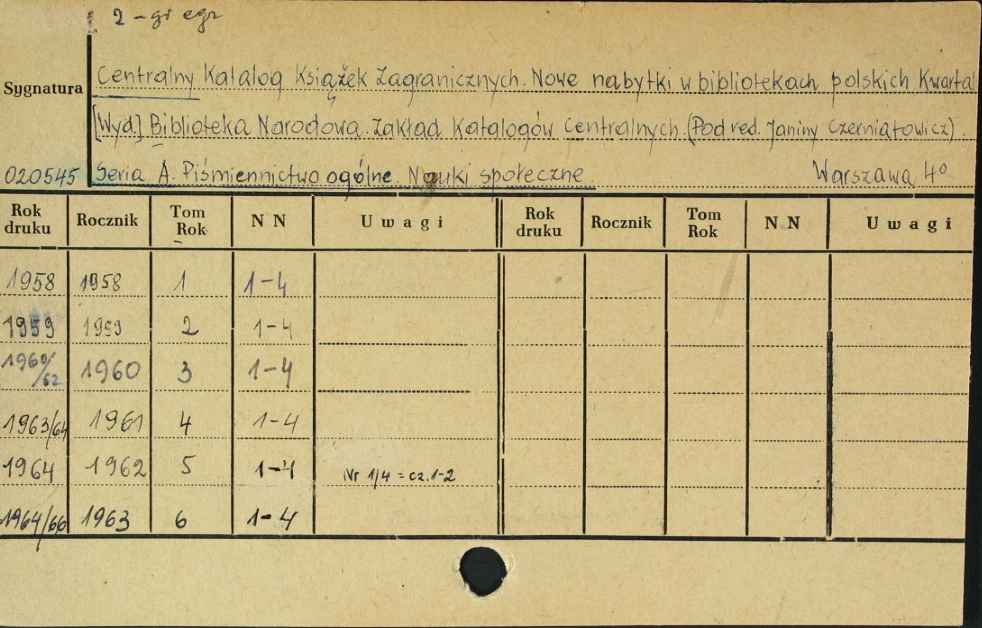 2-gi egz
Centralny Katalog Książek Zagranicznych. Nowe nabytki w bibliotekach polskich Kwartal
Sygnatura
[Wyd.] Biblioteka Narodowa. Zakład Katalogów Centralnych. (Pod red. Janiny Czerniatowicz).
020545 Seria A. Piśmiennictwo ogólne. Nauki społeczne. Warszawa 4°
Rok druku Rocznik Tom Rok N N Uwagi Rok druku Rocznik Tom Rok N N Uwagi
1958 1958 1 1-4
1959 1959 2 1-4
1960/62 1960 3 1-4
1963/64 1961 4 1-4
1964 1962 5 1-4 Nr 1/4 = cz. 1-2
1964/66 1963 6 1-4